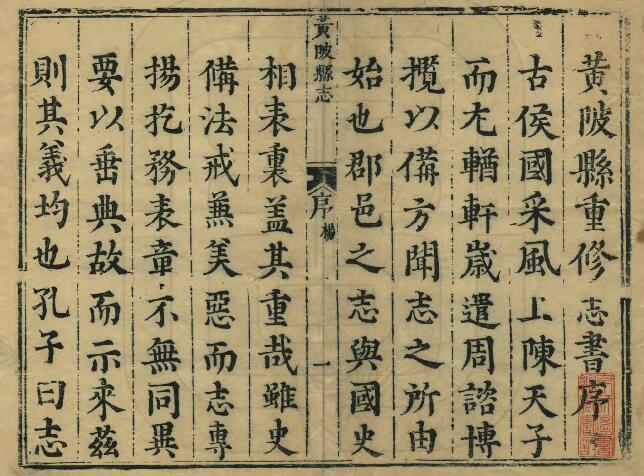 黃陂縣重修志書序
古侯國采風上陳天子
而尢輶軒歲遣周諮博
攬以備方聞志之所由
始也郡邑之志與國史
黃陂縣志
序
楊
一
相表裏盖其重哉雖史
備法戒兼美惡而志專
揚扢務表章不無同異
要以垂典故而示來茲
則其義均也孔子曰志